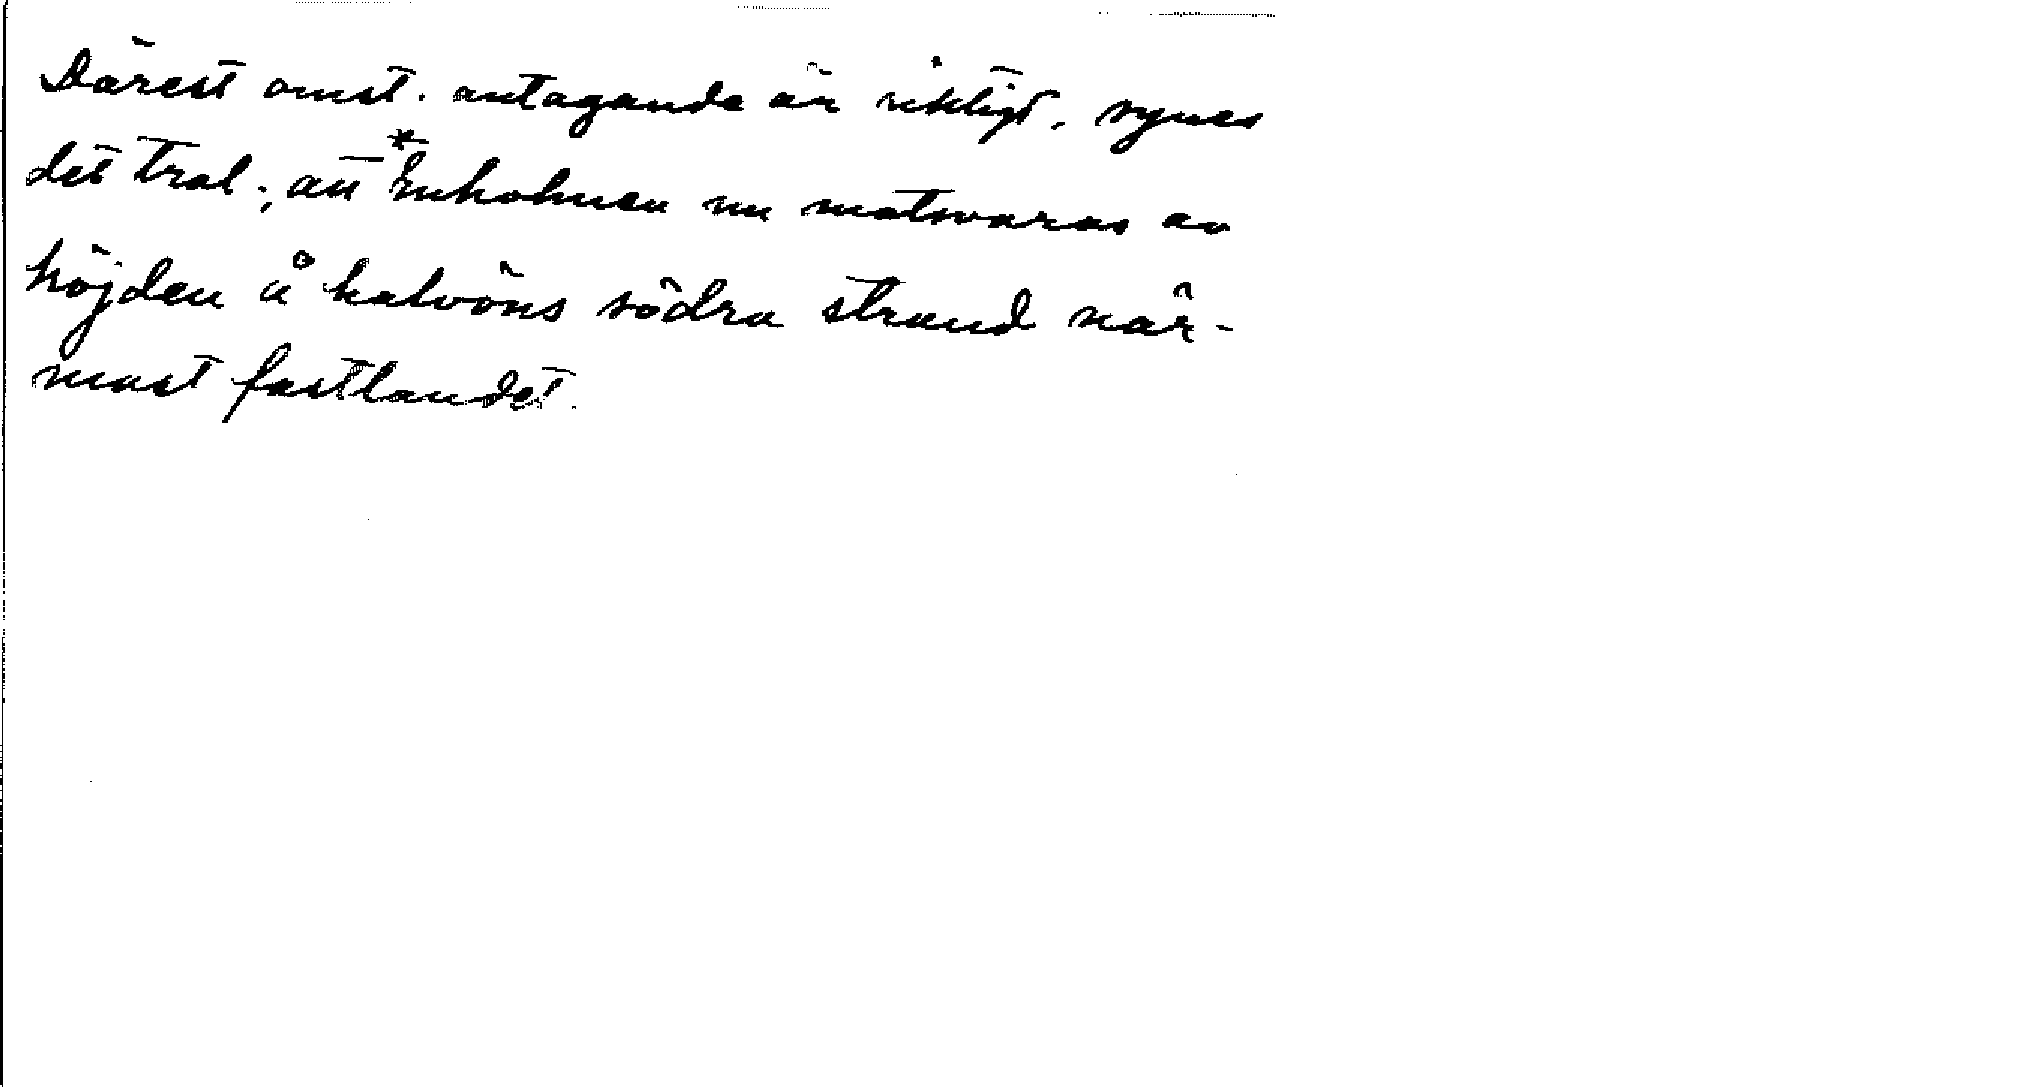 Därest omst. antagande är riktigt, synes
det trol., att *Enholmen nu motsvaras av
höjden å halvöns södra strand när-
mast fastlandet.